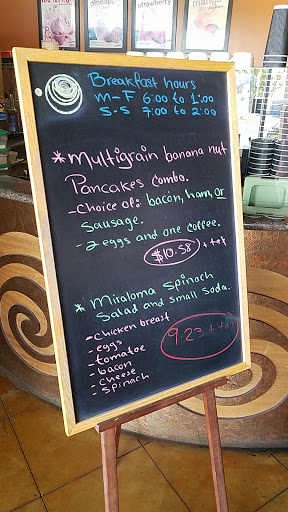 strawberry
mango
Breakfast hours
M-F 6:00 to 1:00
S-S 7:00 to 2:00
* Multigrain banana nut
Pancakes combo.
- Choice of: bacon, ham, or
Sausage.
- 2 eggs and one coffee.
$10.58 + tax
* Miraloma Spinach
Salad and small Soda.
- chicken breast
- eggs
- tomatoe
- bacon
- cheese
- spinach
9.23 + tax